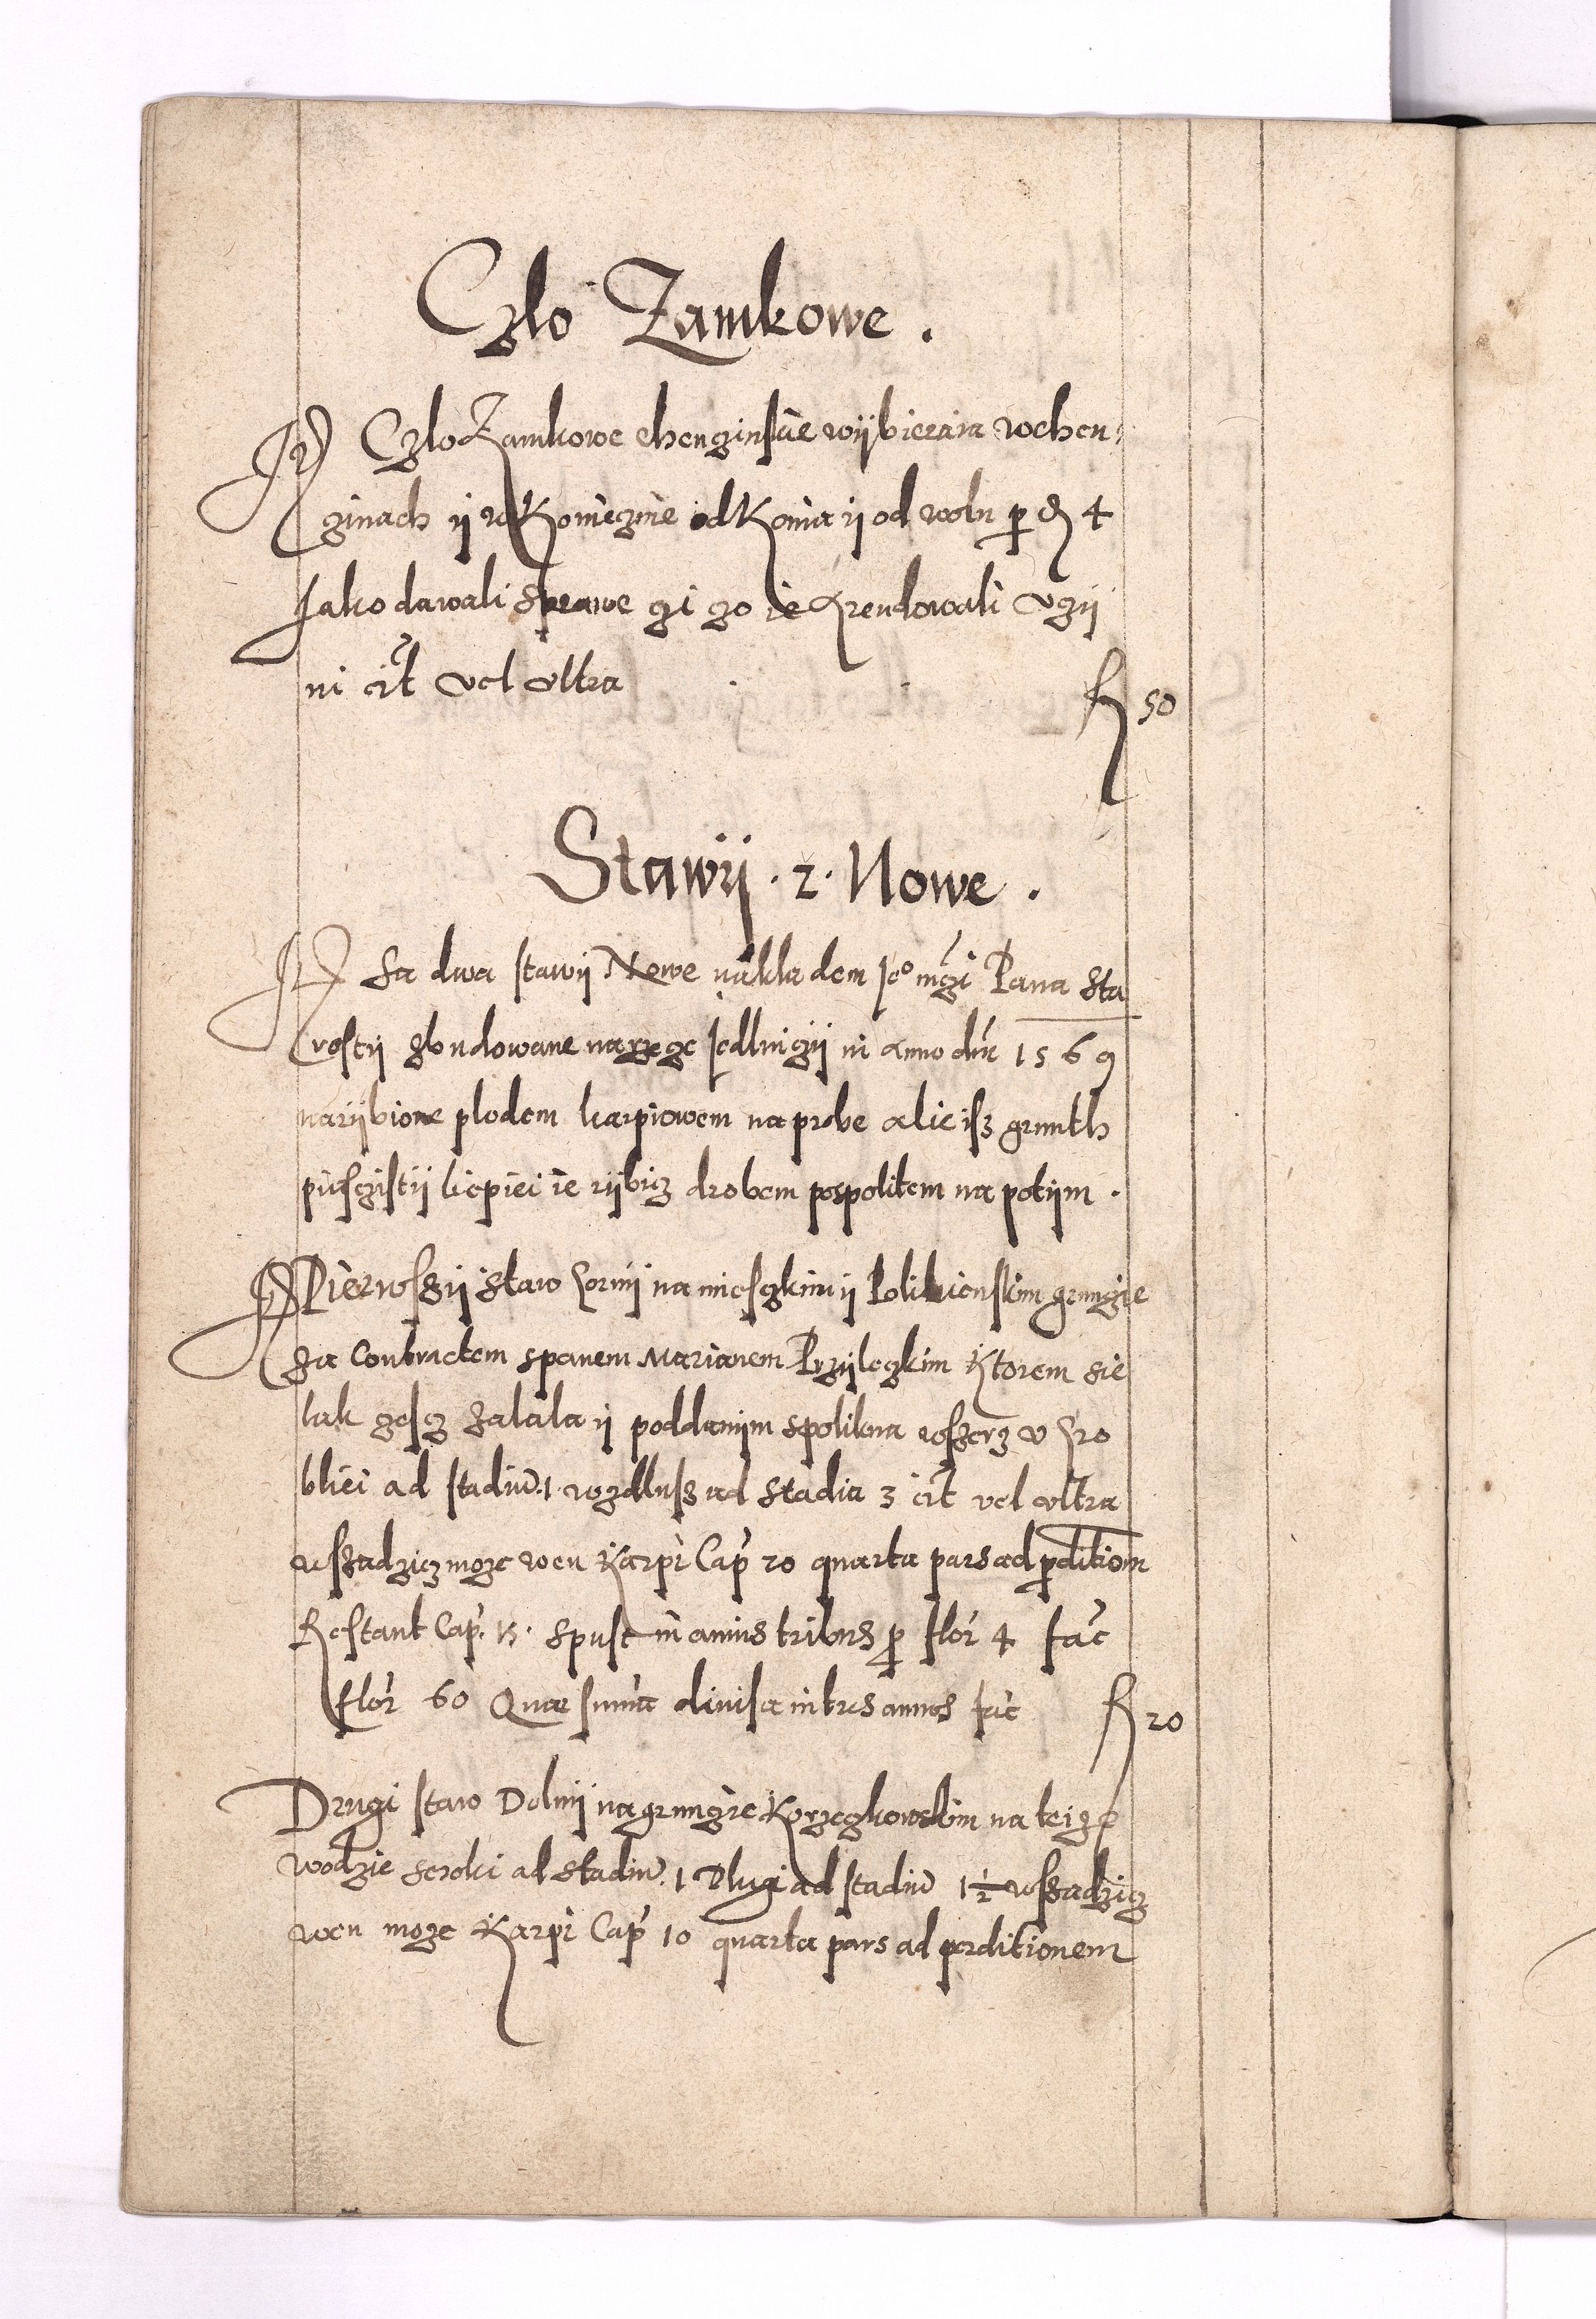 Czlo Zamkowe .
It Czlo Zamkowe chenginskie wÿbieraia wchen:
ginach ÿ w Koniecznie od Konia ÿ od wolu p d 4
Jako dawali sprawe czi czo ie Arendowali vczÿ
ni cirt vel vltra fl 50
Stawÿ . 2 . Nowe .
It Sa dwa stawÿ Nowe nakladem Jeo mczi Pana Sta
rostÿ zbudowane na rzecze Jedlniczÿ in anno dni 1569
narÿbione plodem karpiowem na probe alie isz grunth
piasczistÿ liepiei ie rÿbicz drobem pospolitem na potÿm .
It Pierwszÿ staw Gornÿ na miesczkim ÿ Polikienskim grunczie
za Contractem spanem Marianem Przÿleczkim Ktorem sie
lak czescz zalala ÿ poddanÿm spolikna wszerz v Gro
bliei ad stadiu . 1 . wzdlusz ad stadia 3 cirt vel vltra
wszadzicz moze wen Karpi Cap 20 quarta pars ad pditiom
Restant Cap. 15 . spust in annis tribus p flor 4 fac
flor 60 Quae suma diuisa in tres annos fac fl 20
Drugi staw Dolnÿ na grunczie Korzeczkowskim na teize
wodzie seroki ad stadiu . 1 Dlugi ad stadiu 1 1/2 wszadzicz
wen moze Karpi Cap 10 quarta pars ad perditionem